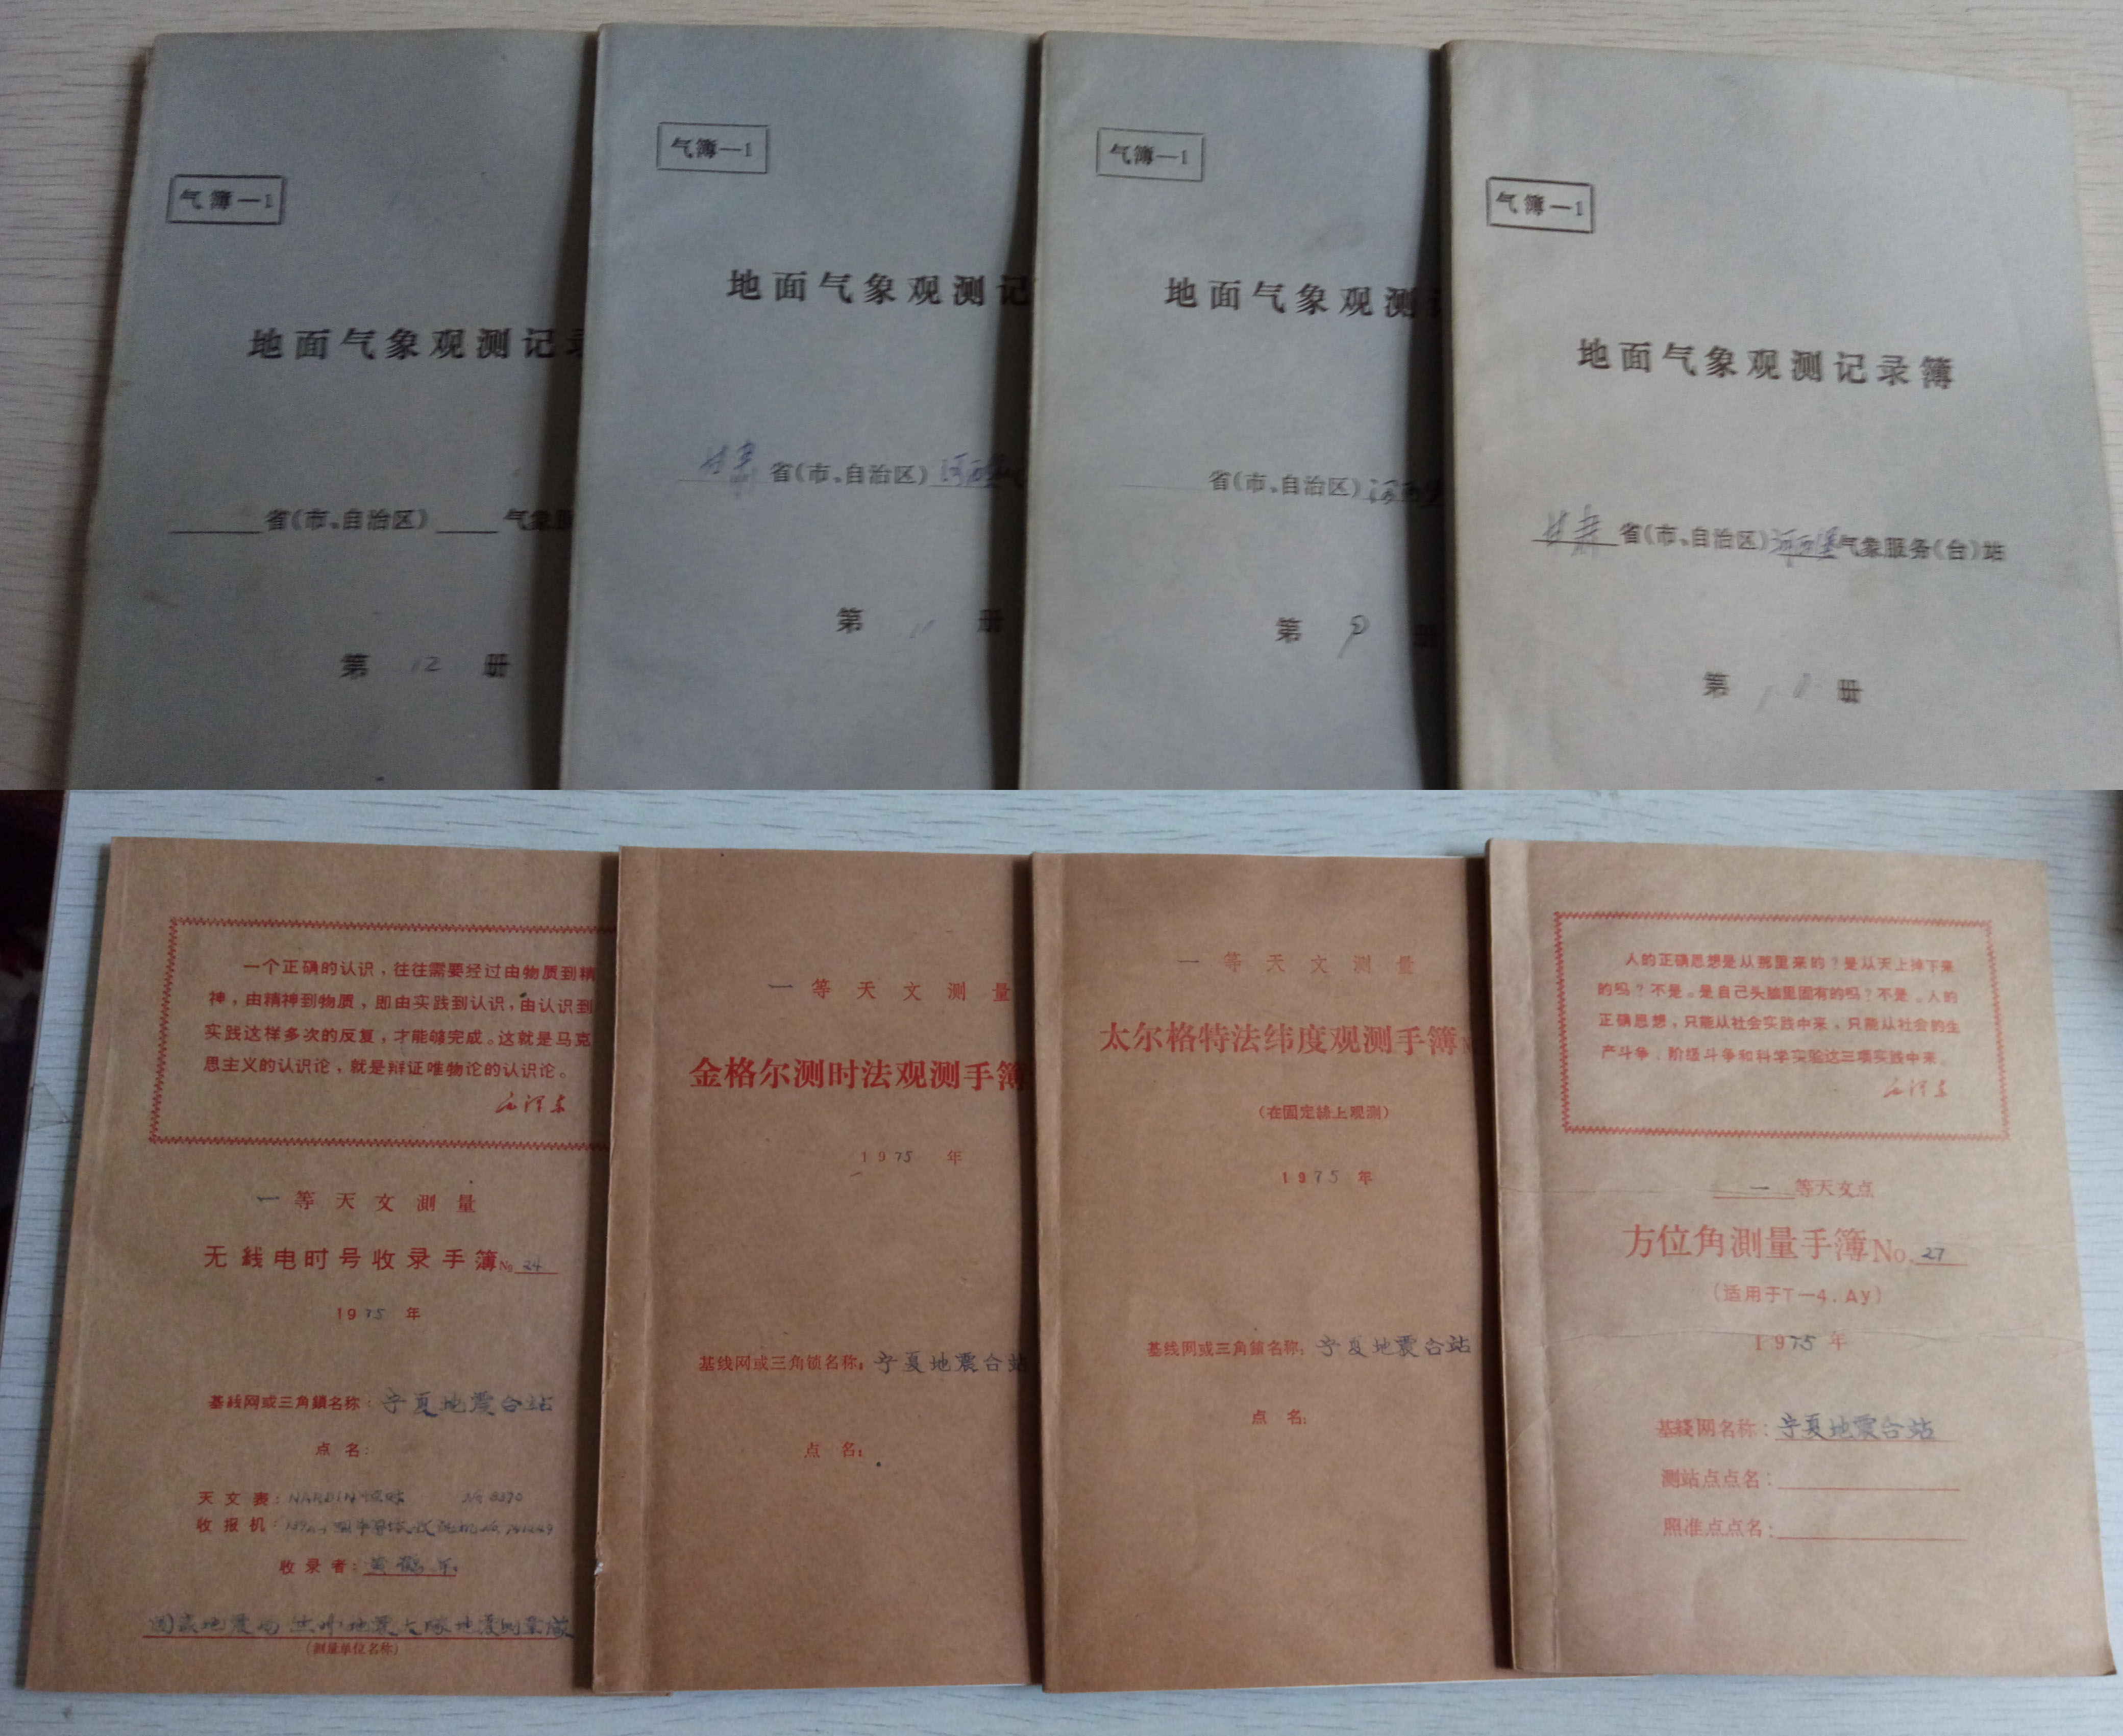 气簿—1
地面气象观测记
省(市、自治区) 气象服
第 12 册
气簿—1
地面气象观测记
甘肃省(市、自治区)河西堡
第 11 册
气簿—1
地面气象观测
省(市、自治区)河西堡
第 9 册
气簿—1
地面气象观测记录簿
甘肃省(市、自治区)河西堡气象服务(台)站
第 10 册
一个正确的认识，往往需要经过由物质到精
神，由精神到物质，即由实践到认识，由认识到
实践这样多次的反复，才能够完成。这就是马克
思主义的认识论，就是辩证唯物论的认识论。
毛泽东
一等天文测量
无线电时号收录手簿№ 24
1975 年
基线网或三角鎖名称：宁夏地震台站
点 名：
天 文 表：NARDIN
收 报 机：
收 录 者：黄
国家地震局兰州地震大队地震测量队
(测量单位名称)
一等天文测量
金格尔测时法观测手簿
1975 年
基线网或三角锁名称：宁夏地震台站
点 名：
一等天文测量
太尔格特法纬度观测手簿
(在固定絲上观测)
1975 年
基线网或三角鎖名称：宁夏地震台站
点 名：
人的正确思想是从那里来的？是从天上掉下来
的吗？不是。是自己头脑里固有的吗？不是。人的
正确思想，只能从社会实践中来，只能从社会的生
产斗争、阶级斗争和科学实验这三项实践中来。
毛泽东
一等天文点
方位角測量手簿No. 27
(适用于T—4.Ay)
1975 年
基綫网名称：宁夏地震台站
测站点点名：
照准点点名：